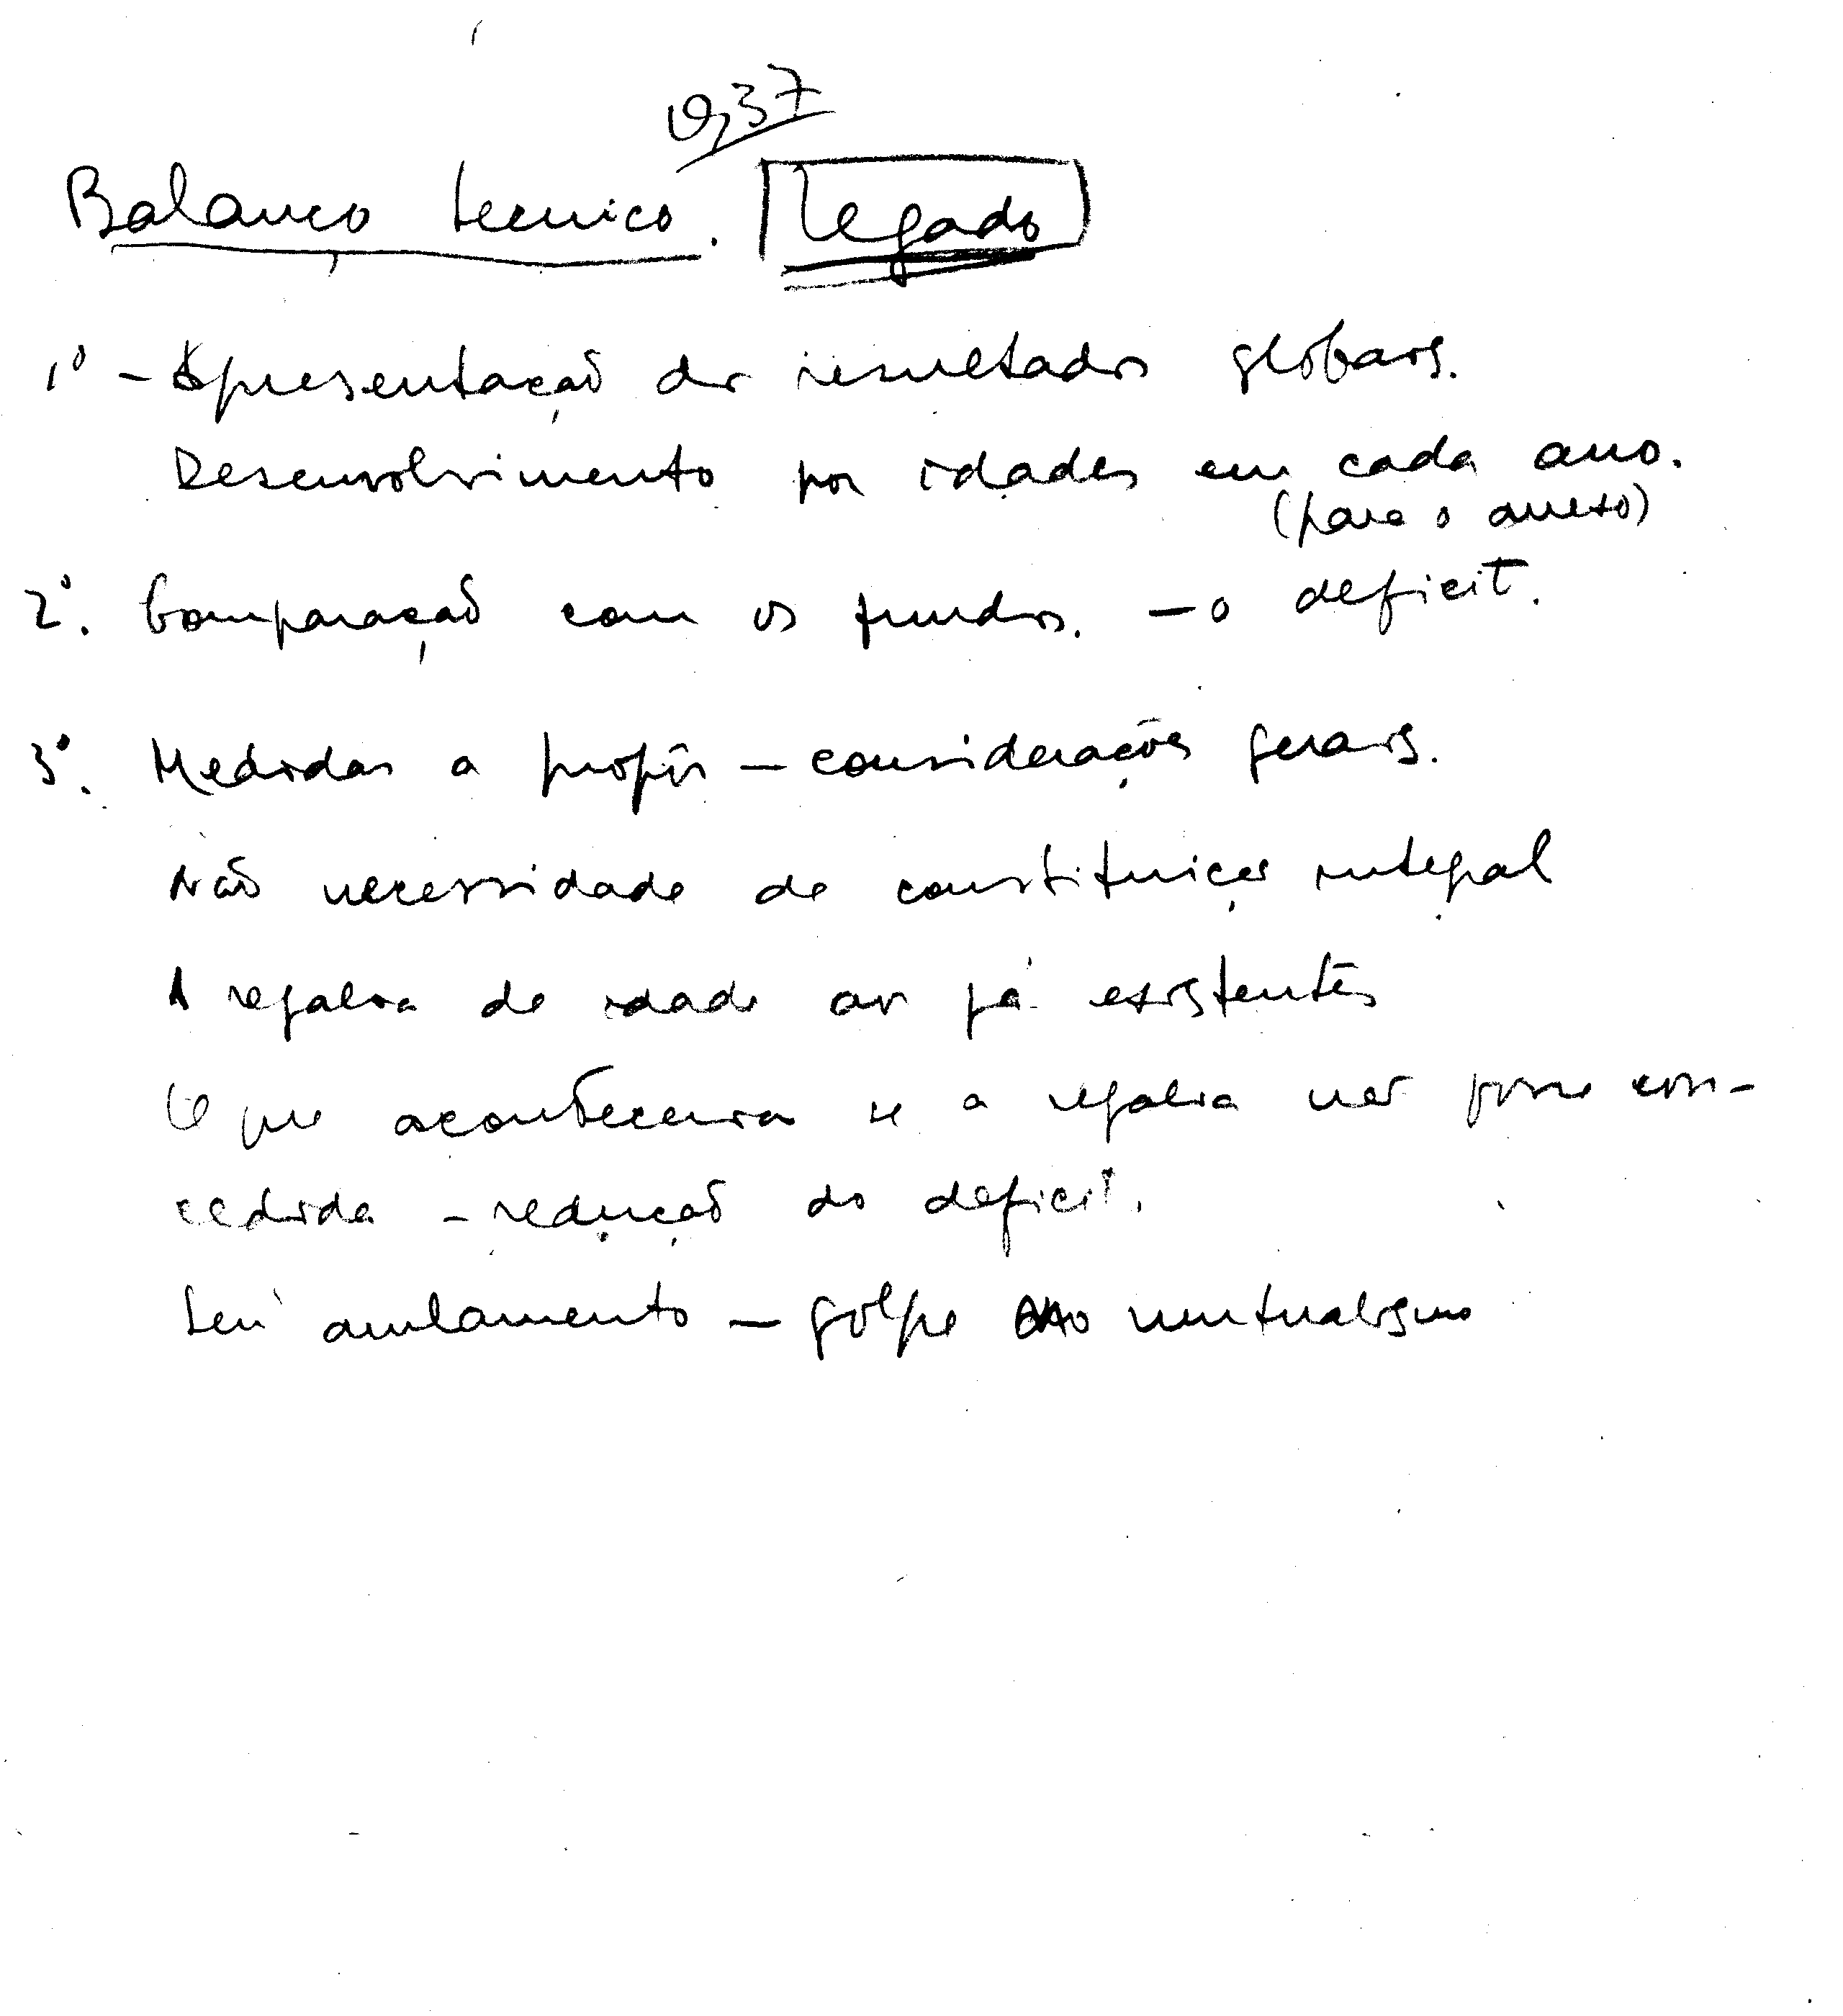 0,37
Balanço tecnico. Legado
1º - Apresentação dos resultados globais.
Desenvolvimento por idades em cada ano.
(para o anexo)
2º. Comparação com os fundos. - o deficit.
3º. Medidas a propôr - considerações gerais.
Não necessidade de constituição integral
A regalia de idade aos já existentes
O que aconteceria se a regalia não fosse con-
cedida - redução do deficit.
Seu anulamento - golpe no mutualismo